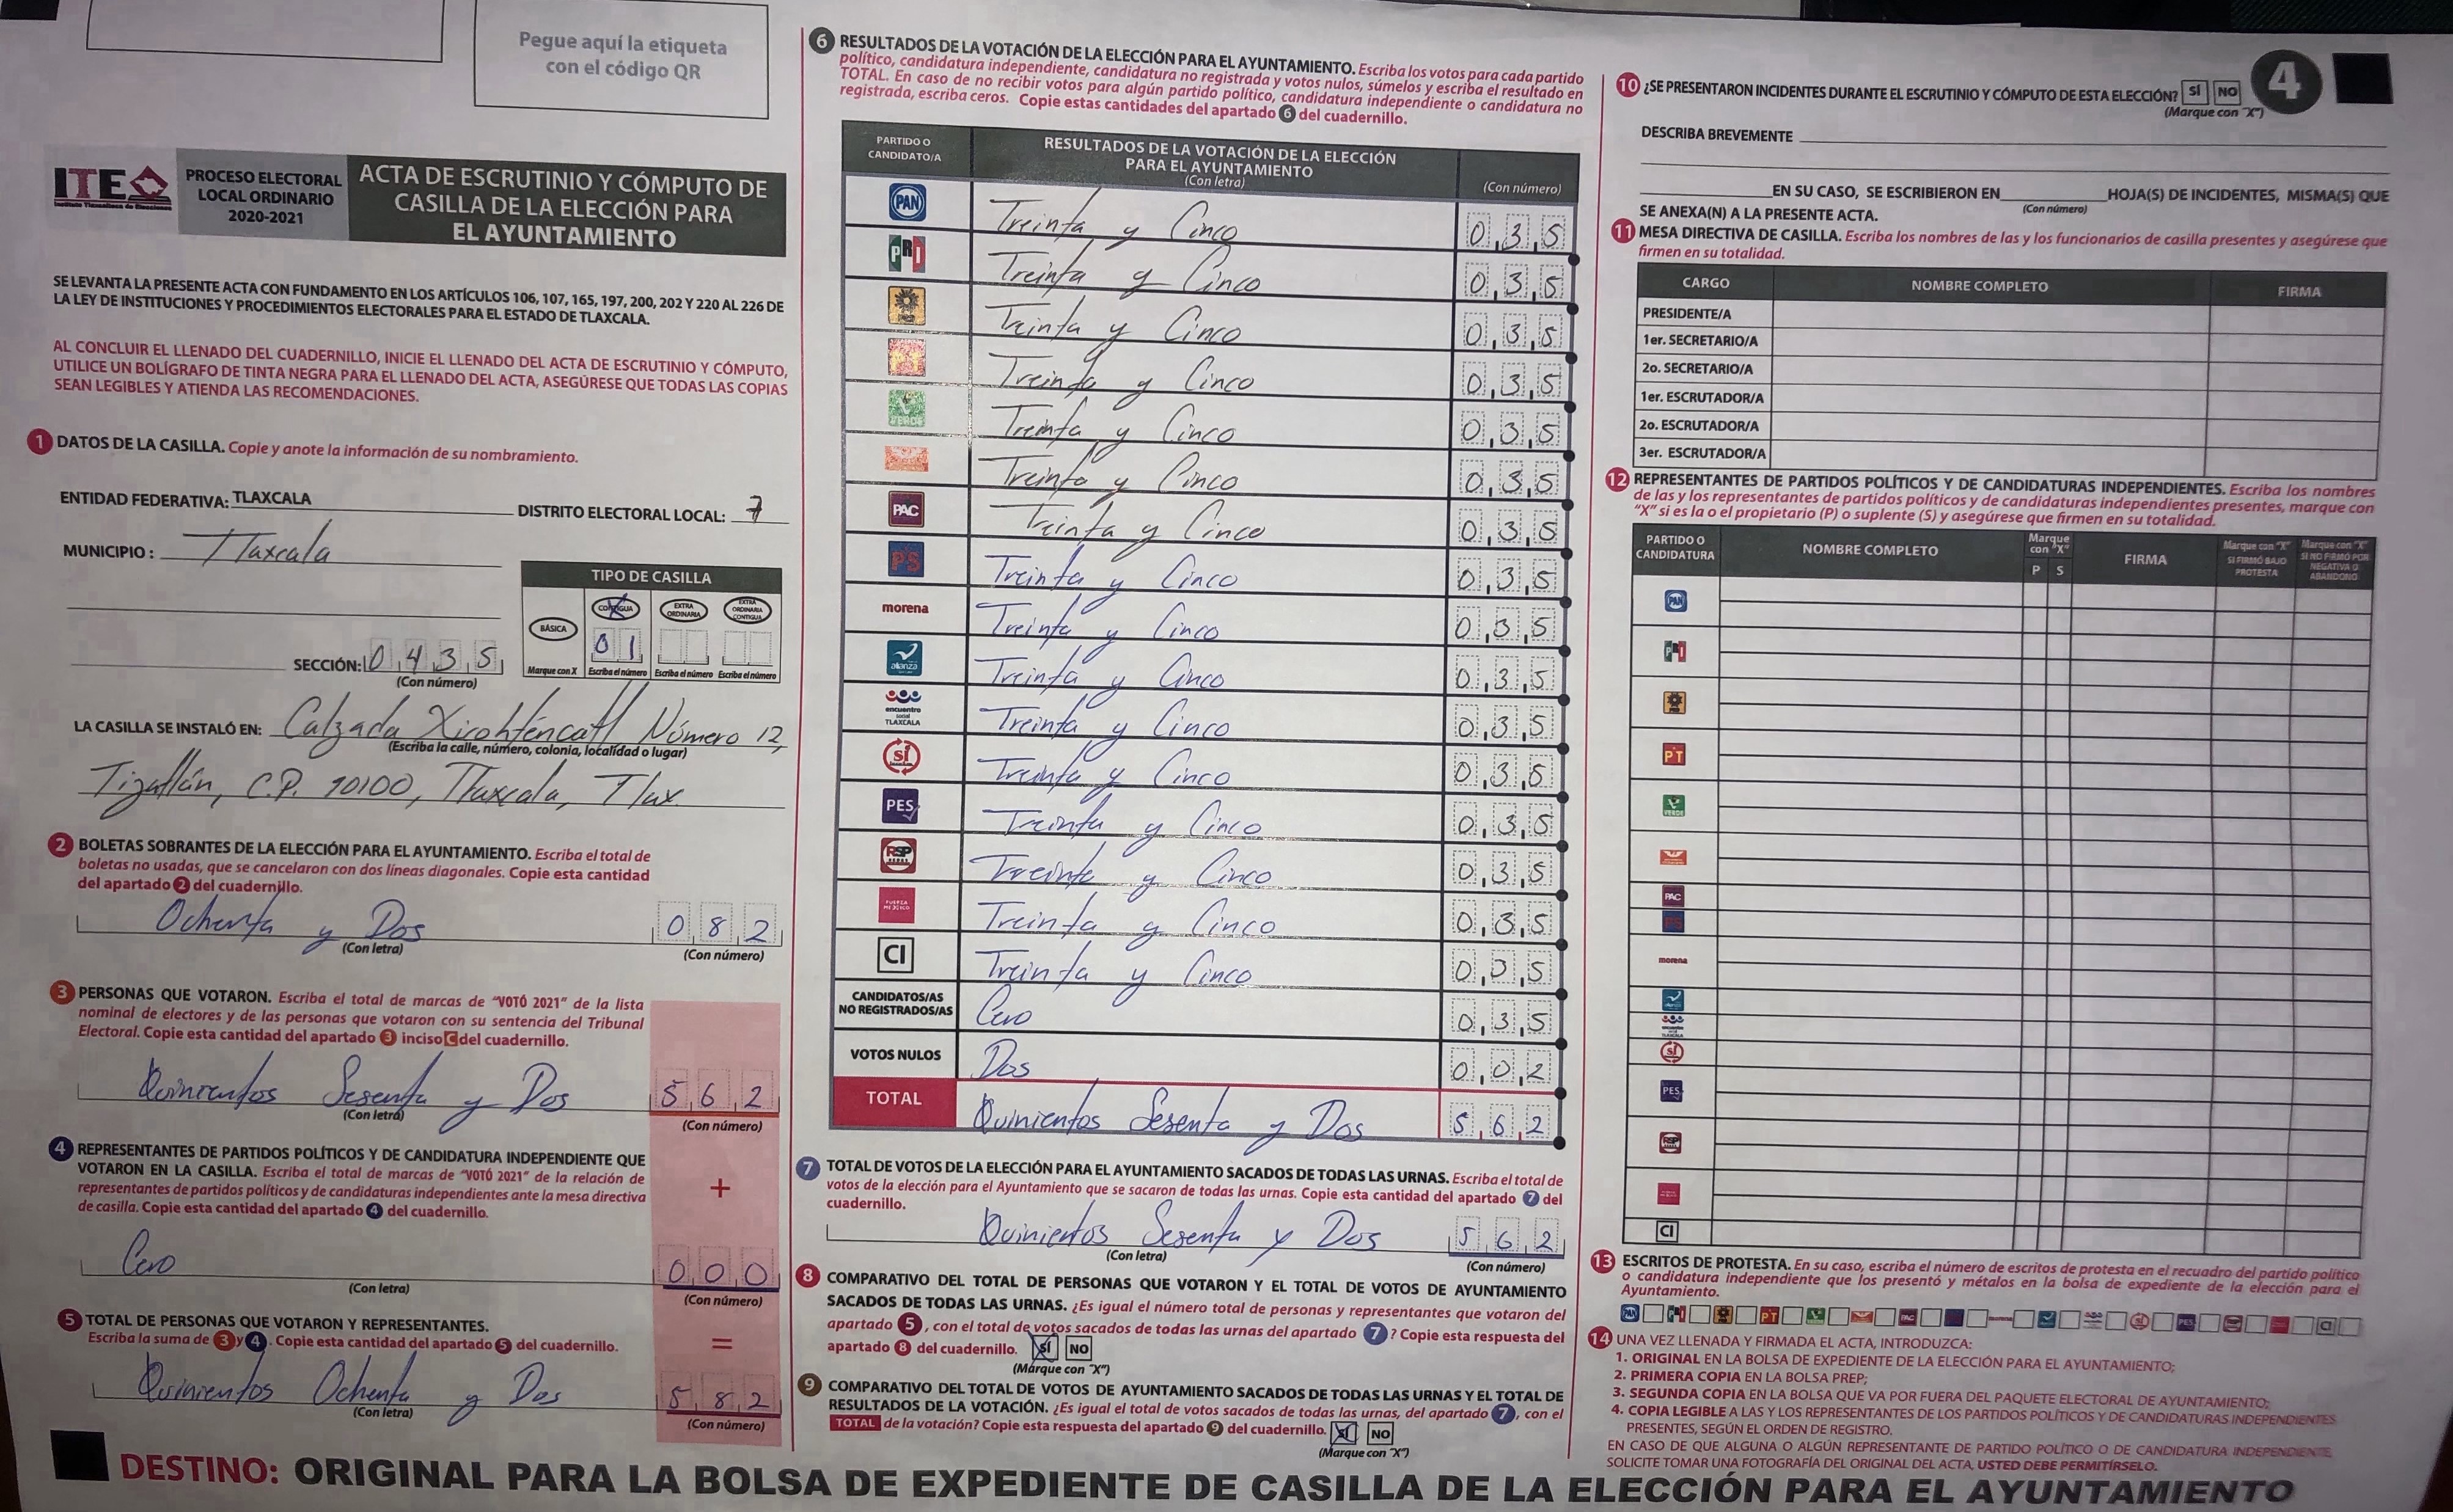 Pegue aquí la etiqueta
con el código QR
ITE
Instituto Tlaxcalteca de Elecciones
PROCESO ELECTORAL
LOCAL ORDINARIO
2020-2021
ACTA DE ESCRUTINIO Y CÓMPUTO DE
CASILLA DE LA ELECCIÓN PARA
EL AYUNTAMIENTO
SE LEVANTA LA PRESENTE ACTA CON FUNDAMENTO EN LOS ARTÍCULOS 106, 107, 165, 197, 200, 202 Y 220 AL 226 DE
LA LEY DE INSTITUCIONES Y PROCEDIMIENTOS ELECTORALES PARA EL ESTADO DE TLAXCALA.
AL CONCLUIR EL LLENADO DEL CUADERNILLO, INICIE EL LLENADO DEL ACTA DE ESCRUTINIO Y CÓMPUTO,
UTILICE UN BOLÍGRAFO DE TINTA NEGRA PARA EL LLENADO DEL ACTA, ASEGÚRESE QUE TODAS LAS COPIAS
SEAN LEGIBLES Y ATIENDA LAS RECOMENDACIONES.
1 DATOS DE LA CASILLA. Copie y anote la información de su nombramiento.
ENTIDAD FEDERATIVA: TLAXCALA DISTRITO ELECTORAL LOCAL: 7
MUNICIPIO: Tlaxcala
TIPO DE CASILLA
BÁSICA CONTIGUA EXTRA ORDINARIA EXTRA ORDINARIA CONTIGUA
0 1
Marque con X Escriba el número Escriba el número Escriba el número
SECCIÓN: 0 4 3 5
(Con número)
LA CASILLA SE INSTALÓ EN: Calzada Xicohténcatl Número 12,
(Escriba la calle, número, colonia, localidad o lugar)
Tizatlán, C.P. 90100, Tlaxcala, Tlax.
2 BOLETAS SOBRANTES DE LA ELECCIÓN PARA EL AYUNTAMIENTO. Escriba el total de
boletas no usadas, que se cancelaron con dos líneas diagonales. Copie esta cantidad
del apartado 2 del cuadernillo.
Ochenta y Dos 0 8 2
(Con letra) (Con número)
3 PERSONAS QUE VOTARON. Escriba el total de marcas de "VOTÓ 2021" de la lista
nominal de electores y de las personas que votaron con su sentencia del Tribunal
Electoral. Copie esta cantidad del apartado 3 inciso C del cuadernillo.
Quinientos Sesenta y Dos 5 6 2
(Con letra) (Con número)
4 REPRESENTANTES DE PARTIDOS POLÍTICOS Y DE CANDIDATURA INDEPENDIENTE QUE
VOTARON EN LA CASILLA. Escriba el total de marcas de "VOTÓ 2021" de la relación de
representantes de partidos políticos y de candidaturas independientes ante la mesa directiva
de casilla. Copie esta cantidad del apartado 4 del cuadernillo.
+
Cero 0 0 0
(Con letra) (Con número)
5 TOTAL DE PERSONAS QUE VOTARON Y REPRESENTANTES.
Escriba la suma de 3 y 4. Copie esta cantidad del apartado 5 del cuadernillo.
=
Quinientos Ochenta y Dos 5 8 2
(Con letra) (Con número)
6 RESULTADOS DE LA VOTACIÓN DE LA ELECCIÓN PARA EL AYUNTAMIENTO. Escriba los votos para cada partido
político, candidatura independiente, candidatura no registrada y votos nulos, súmelos y escriba el resultado en
TOTAL. En caso de no recibir votos para algún partido político, candidatura independiente o candidatura no
registrada, escriba ceros. Copie estas cantidades del apartado 6 del cuadernillo.
PARTIDO O
CANDIDATO/A
RESULTADOS DE LA VOTACIÓN DE LA ELECCIÓN
PARA EL AYUNTAMIENTO
(Con letra) (Con número)
PAN Treinta y Cinco 0 3 5
PRI Treinta y Cinco 0 3 5
PRD Treinta y Cinco 0 3 5
PT Treinta y Cinco 0 3 5
VERDE Treinta y Cinco 0 3 5
Treinta y Cinco 0 3 5
PAC Treinta y Cinco 0 3 5
PS Treinta y Cinco 0 3 5
morena Treinta y Cinco 0 3 5
alianza Treinta y Cinco 0 3 5
encuentro social TLAXCALA Treinta y Cinco 0 3 5
sí Treinta y Cinco 0 3 5
PES Treinta y Cinco 0 3 5
RSP Treinta y Cinco 0 3 5
FUERZA MÉXICO Treinta y Cinco 0 3 5
CI Treinta y Cinco 0 3 5
CANDIDATOS/AS
NO REGISTRADOS/AS Cero 0 3 5
VOTOS NULOS Dos 0 0 2
TOTAL Quinientos Sesenta y Dos 5 6 2
7 TOTAL DE VOTOS DE LA ELECCIÓN PARA EL AYUNTAMIENTO SACADOS DE TODAS LAS URNAS. Escriba el total de
votos de la elección para el Ayuntamiento que se sacaron de todas las urnas. Copie esta cantidad del apartado 7 del
cuadernillo.
Quinientos Sesenta y Dos 5 6 2
(Con letra) (Con número)
8 COMPARATIVO DEL TOTAL DE PERSONAS QUE VOTARON Y EL TOTAL DE VOTOS DE AYUNTAMIENTO
SACADOS DE TODAS LAS URNAS. ¿Es igual el número total de personas y representantes que votaron del
apartado 5, con el total de votos sacados de todas las urnas del apartado 7? Copie esta respuesta del
apartado 8 del cuadernillo. SÍ NO
(Marque con "X")
9 COMPARATIVO DEL TOTAL DE VOTOS DE AYUNTAMIENTO SACADOS DE TODAS LAS URNAS Y EL TOTAL DE
RESULTADOS DE LA VOTACIÓN. ¿Es igual el total de votos sacados de todas las urnas, del apartado 7, con el
TOTAL de la votación? Copie esta respuesta del apartado 9 del cuadernillo. SÍ NO
(Marque con "X")
10 ¿SE PRESENTARON INCIDENTES DURANTE EL ESCRUTINIO Y CÓMPUTO DE ESTA ELECCIÓN? SÍ NO
(Marque con "X")
4
DESCRIBA BREVEMENTE
EN SU CASO, SE ESCRIBIERON EN HOJA(S) DE INCIDENTES, MISMA(S) QUE
(Con número)
SE ANEXA(N) A LA PRESENTE ACTA.
11 MESA DIRECTIVA DE CASILLA. Escriba los nombres de las y los funcionarios de casilla presentes y asegúrese que
firmen en su totalidad.
CARGO NOMBRE COMPLETO FIRMA
PRESIDENTE/A
1er. SECRETARIO/A
2o. SECRETARIO/A
1er. ESCRUTADOR/A
2o. ESCRUTADOR/A
3er. ESCRUTADOR/A
12 REPRESENTANTES DE PARTIDOS POLÍTICOS Y DE CANDIDATURAS INDEPENDIENTES. Escriba los nombres
de las y los representantes de partidos políticos y de candidaturas independientes presentes, marque con
"X" si es la o el propietario (P) o suplente (S) y asegúrese que firmen en su totalidad.
PARTIDO O
CANDIDATURA
NOMBRE COMPLETO
Marque
con "X"
P S
FIRMA
Marque con "X"
SI FIRMÓ BAJO
PROTESTA
Marque con "X"
SI NO FIRMÓ POR
NEGATIVA O
ABANDONO
PAN
PRI
PRD
PT
VERDE
PAC
PS
morena
alianza
encuentro social TLAXCALA
sí
PES
RSP
CI
13 ESCRITOS DE PROTESTA. En su caso, escriba el número de escritos de protesta en el recuadro del partido político
o candidatura independiente que los presentó y métalos en la bolsa de expediente de la elección para el
Ayuntamiento.
PAN PRI PRD PT VERDE PAC PS morena sí PES RSP CI
14 UNA VEZ LLENADA Y FIRMADA EL ACTA, INTRODUZCA:
1. ORIGINAL EN LA BOLSA DE EXPEDIENTE DE LA ELECCIÓN PARA EL AYUNTAMIENTO;
2. PRIMERA COPIA EN LA BOLSA PREP;
3. SEGUNDA COPIA EN LA BOLSA QUE VA POR FUERA DEL PAQUETE ELECTORAL DE AYUNTAMIENTO;
4. COPIA LEGIBLE A LAS Y LOS REPRESENTANTES DE LOS PARTIDOS POLÍTICOS Y DE CANDIDATURAS INDEPENDIENTES
PRESENTES, SEGÚN EL ORDEN DE REGISTRO.
EN CASO DE QUE ALGUNA O ALGÚN REPRESENTANTE DE PARTIDO POLÍTICO O DE CANDIDATURA INDEPENDIENTE
SOLICITE TOMAR UNA FOTOGRAFÍA DEL ORIGINAL DEL ACTA, USTED DEBE PERMITÍRSELO.
DESTINO: ORIGINAL PARA LA BOLSA DE EXPEDIENTE DE CASILLA DE LA ELECCIÓN PARA EL AYUNTAMIENTO